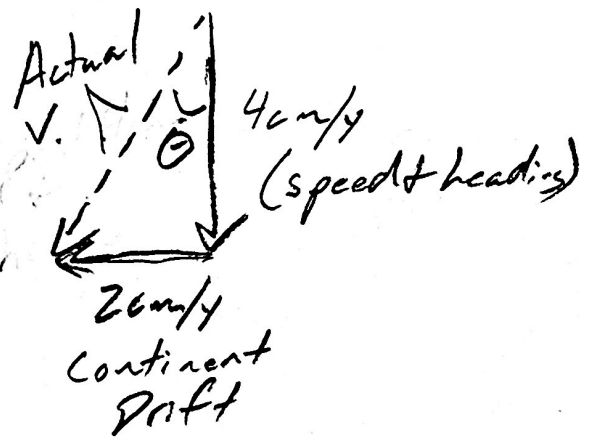 Actual
V.
θ
4cm/y
(speed & heading)
2cm/y
Continent
Drift